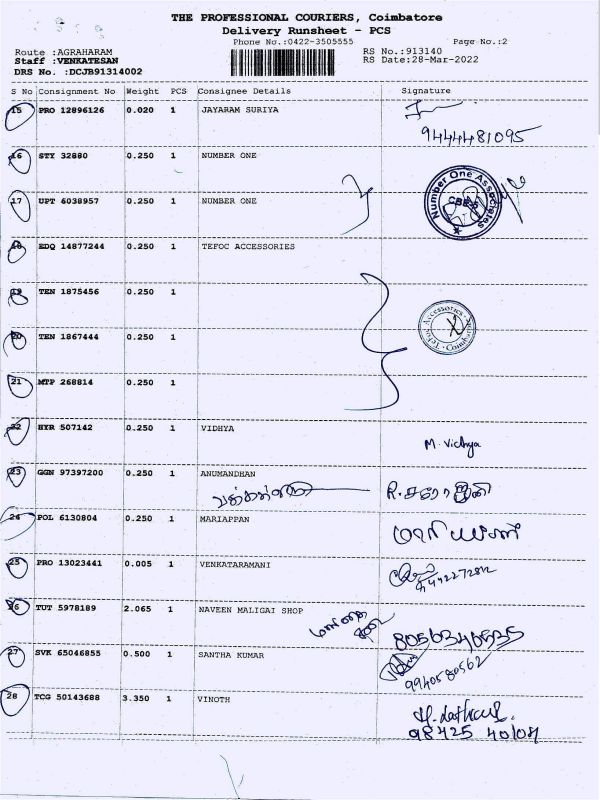 THE PROFESSIONAL COURIERS, Coimbatore
Delivery Runsheet - PCS
Phone No.:0422-3505555 Page No.:2
Route :AGRAHARAM RS No.:913140
Staff :VENKATESAN RS Date:28-Mar-2022
DRS No. :DCJB91314002
S No Consignment No Weight PCS Consignee Details Signature
15 PRO 12896126 0.020 1 JAYARAM SURIYA
9444481095
16 STY 32880 0.250 1 NUMBER ONE
Number One Associates
CBE-5
17 UPT 6038957 0.250 1 NUMBER ONE
18 EDQ 14877244 0.250 1 TEFOC ACCESSORIES
19 TEN 1875456 0.250 1
Accessories
20 TEN 1867444 0.250 1
21 MTP 268814 0.250 1
22 HYR 507142 0.250 1 VIDHYA
M. Vidhya
23 GGN 97397200 0.250 1 ANUMANDHAN
R. சரோஜினி
24 POL 6130804 0.250 1 MARIAPPAN
25 PRO 13023441 0.005 1 VENKATARAMANI
26 TUT 5978189 2.065 1 NAVEEN MALIGAI SHOP
8056340535
27 SVK 65046855 0.500 1 SANTHA KUMAR
9940580562
28 TCG 50143688 3.350 1 VINOTH
98425 40104